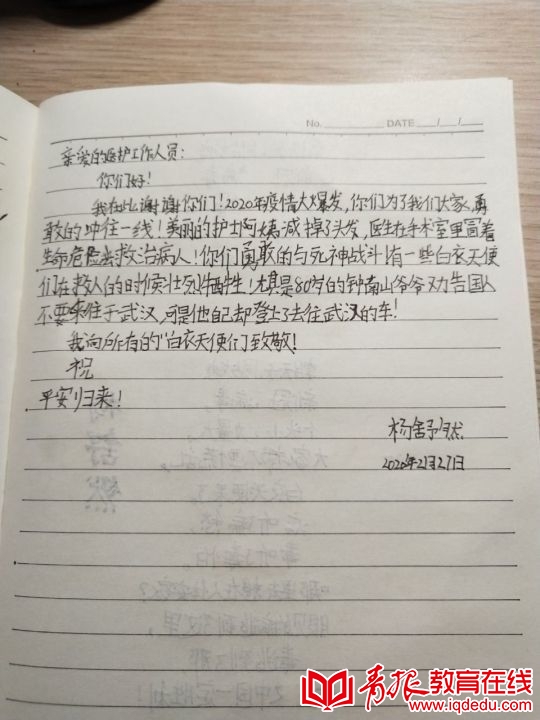 No. DATE / /
亲爱的医护工作人员:
你们好!
我在此谢谢你们!2020年疫情大爆发,你们为了我们大家,勇
敢的冲往一线!美丽的护士阿姨减掉了头发,医生在手术室里冒着
生命危险去救治病人!你们勇敢的与死神战斗!有一些白衣天使
们在救人的时候壮烈牺牲!尤其是80岁的钟南山爷爷劝告国人
不要来往于武汉,可是他自己却登上了去往武汉的车!
我向所有的"白衣天使们致敬!
祝
平安归来!
杨舒然
2020年2月27日
青报教育在线
www.iqdedu.com